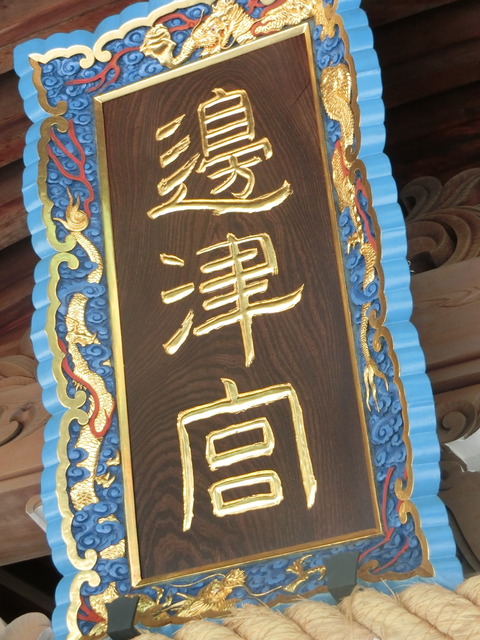 邊津宮